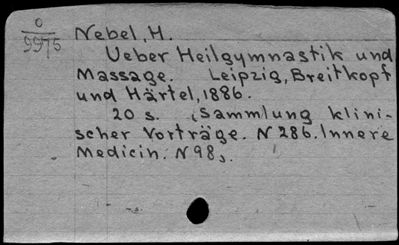 0
9975
Nebel, H.
Ueber Heilgymnastik und
Massage. Leipzig, Breitkopf
und Härtel, 1886.
20 s. (Sammlung klini-
scher Vorträge. N 286. Innere
Medicin. N 98).